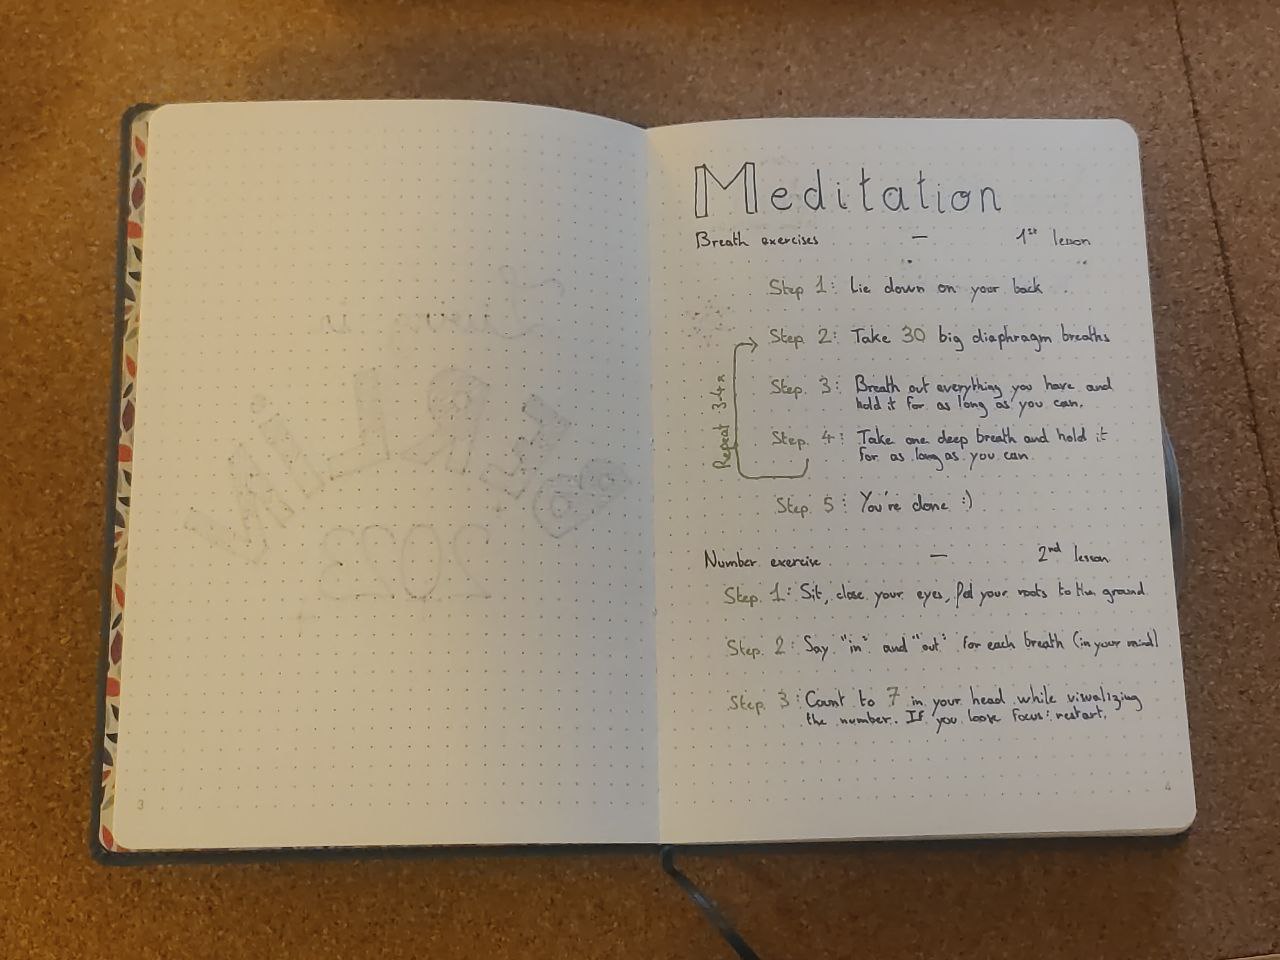 Meditation
Breath exercises — 1st lesson
Step 1: Lie down on your back
Step 2: Take 30 big diaphragm breaths
Step 3: Breath out everything you have and
hold it for as long as you can.
Step 4: Take one deep breath and hold it
for as long as you can.
Repeat 3-4x
Step 5: You're done :)
Number exercise — 2nd lesson
Step 1: Sit, close your eyes, feel your roots to the ground
Step 2: Say "in" and "out" for each breath (in your mind)
Step 3: Count to 7 in your head while visualizing
the number. If you loose focus: restart.
3
4
2023